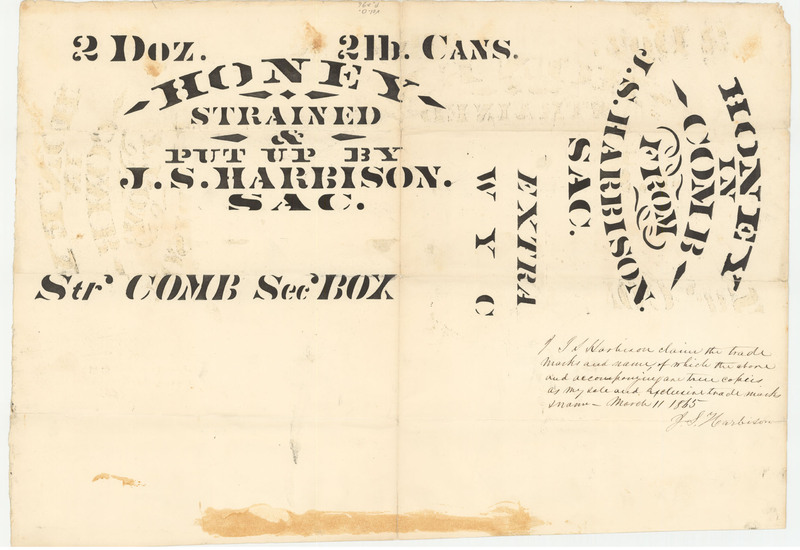 2 Doz. 2lb. Cans.
HONEY
STRAINED
&
PUT UP BY
J. S. HARBISON.
SAC.
Str. COMB Sec. BOX
HONEY
IN
COMB
FROM
J. S. HARBISON.
SAC.
EXTRA
W Y C
I J S Harbison claim the trade
marks and names of which the above
and accompanying are true copies
as my sole and exclusive trade marks
& name – March 11 1865
J. S. Harbison